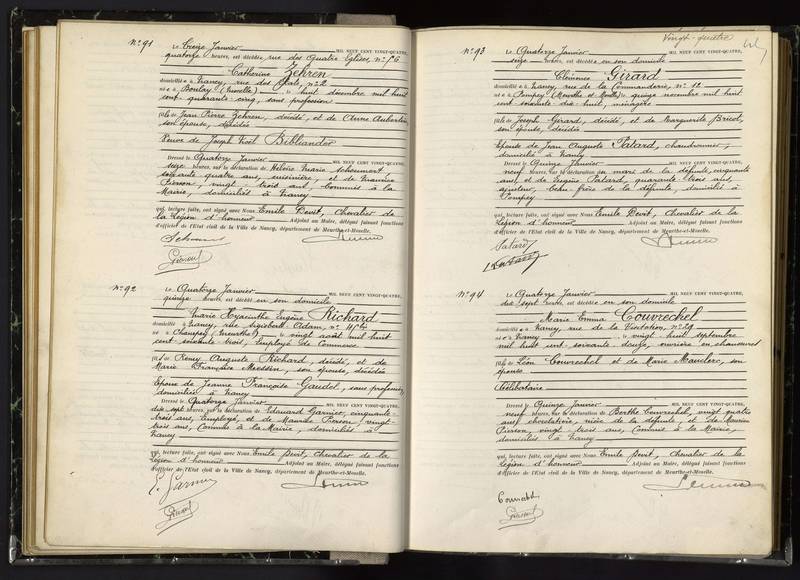 N° 91
Le Treize Janvier MIL NEUF CENT VINGT-QUATRE,
quatorze heures, est décédée, rue des Quatre Eglises, n°
Catherine Zehren
domiciliée à Nancy, rue des n° 2
née à Boulay (Moselle) le huit décembre mil huit
cent quarante cinq, sans profession
fille de Jean Pierre Zehren, décédé, et de Anne Aubertin,
son épouse, décédée
Veuve de Joseph Noël Bibliander
Dressé le Quatorze Janvier MIL NEUF CENT VINGT-QUATRE,
seize heures, sur la déclaration de Héloïse Marie
soixante quatre ans, cuisinière, et de Maurice
Pierson, vingt trois ans, Commis à la
Mairie, domiciliés à Nancy
qui, lecture faite, ont signé avec Nous Emile Devit, Chevalier de
la Légion d'honneur Adjoint au Maire, délégué faisant fonctions
d'officier de l'Etat civil de la Ville de Nancy, département de Meurthe-et-Moselle.
N° 92
Le Quatorze Janvier MIL NEUF CENT VINGT-QUATRE,
quinze heures, est décédé en son domicile
Marie Hyacinthe Eugène Richard
domicilié à Nancy, rue Sigisbert Adam, n°
né à Champey (Meurthe) le vingt août mil huit
cent soixante trois, Employé de Commerce
fils de Remy Auguste Richard, décédé, et de
Marie Françoise Messin, son épouse, décédée
Epoux de Jeanne Françoise Gaudot, sans profession,
domiciliée à Nancy
Dressé le Quatorze Janvier MIL NEUF CENT VINGT-QUATRE,
dix sept heures, sur la déclaration de Edouard Garnier, cinquante
trois ans, Employé, et de Maurice Pierson, vingt
trois ans, Commis à la Mairie, domiciliés à
Nancy
qui, lecture faite, ont signé avec Nous Emile Devit, Chevalier de la
Légion d'honneur Adjoint au Maire, délégué faisant fonctions
d'officier de l'Etat civil de la Ville de Nancy, département de Meurthe-et-Moselle.
E. Garnier
Vingt-quatre
N° 93
Le Quatorze Janvier MIL NEUF CENT VINGT-QUATRE,
seize heures, est décédée en son domicile
Clémence Girard
domiciliée à Nancy, rue de la Commanderie, n° 12
née à Pompey (Meurthe et Moselle) le quinze novembre mil huit
cent soixante dix huit, ménagère
fille de Joseph Girard, décédé, et de Marguerite Bricol,
son épouse, décédée
Epouse de Jean Auguste Patard, chaudronnier,
domicilié à Nancy
Dressé le Quinze Janvier MIL NEUF CENT VINGT-QUATRE,
neuf heures, sur la déclaration du mari de la défunte, cinquante
ans, et de Patard, quarante trois ans,
ajusteur, beau-frère de la défunte, domicilié à
Pompey
qui, lecture faite, ont signé avec Nous Emile Devit, Chevalier de la
Légion d'honneur Adjoint au Maire, délégué faisant fonctions
d'officier de l'Etat civil de la Ville de Nancy, département de Meurthe-et-Moselle.
N° 94
Le Quatorze Janvier MIL NEUF CENT VINGT-QUATRE,
dix sept heures, est décédée en son domicile
Marie Emma Couvrechel
domiciliée à Nancy, rue de la Visitation, n° 29
née à Nancy le vingt huit septembre
mil huit cent soixante deux, ouvrière en chaussures
fille de Léon Couvrechel et de Marie Mauclerc, son
épouse
Célibataire
Dressé le Quinze Janvier MIL NEUF CENT VINGT-QUATRE,
neuf heures, sur la déclaration de Berthe Couvrechel, vingt quatre
ans, chocolatière, nièce de la défunte, et de Maurice
Pierson, vingt trois ans, Commis à la Mairie,
domiciliés à Nancy
qui, lecture faite, ont signé avec Nous Emile Devit, Chevalier de la
Légion d'honneur Adjoint au Maire, délégué faisant fonctions
d'officier de l'Etat civil de la Ville de Nancy, département de Meurthe-et-Moselle.